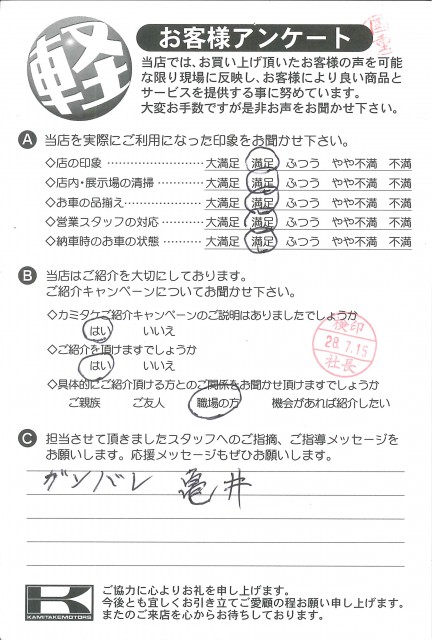 軽
お客様アンケート
当店では、お買い上げ頂いたお客様の声を可能
な限り現場に反映し、お客様により良い商品と
サービスを提供する事に努めています。
大変お手数ですが是非お声をお聞かせ下さい。
A 当店を実際にご利用になった印象をお聞かせ下さい。
◇店の印象 ……………………… 大満足 満足 ふつう やや不満 不満
◇店内・展示場の清掃 ………… 大満足 満足 ふつう やや不満 不満
◇お車の品揃え ………………… 大満足 満足 ふつう やや不満 不満
◇営業スタッフの対応 ………… 大満足 満足 ふつう やや不満 不満
◇納車時のお車の状態 ………… 大満足 満足 ふつう やや不満 不満
B 当店はご紹介を大切にしております。
ご紹介キャンペーンについてお聞かせ下さい。
◇カミタケご紹介キャンペーンのご説明はありましたでしょうか
はい いいえ
◇ご紹介を頂けますでしょうか
はい いいえ
検印
28.7.15
社長
◇具体的にご紹介頂ける方とのご関係をお聞かせ頂けますでしょうか
ご親族 ご友人 職場の方 機会があれば紹介したい
C 担当させて頂きましたスタッフへのご指摘、ご指導メッセージを
お願いします。応援メッセージもぜひお願いします。
ガンバレ 亀井
K
KAMITAKEMOTORS
ご協力に心よりお礼を申し上げます。
今後とも宜しくお引き立てご愛顧の程お願い申し上げます。
またのご来店を心からお待ちしております。